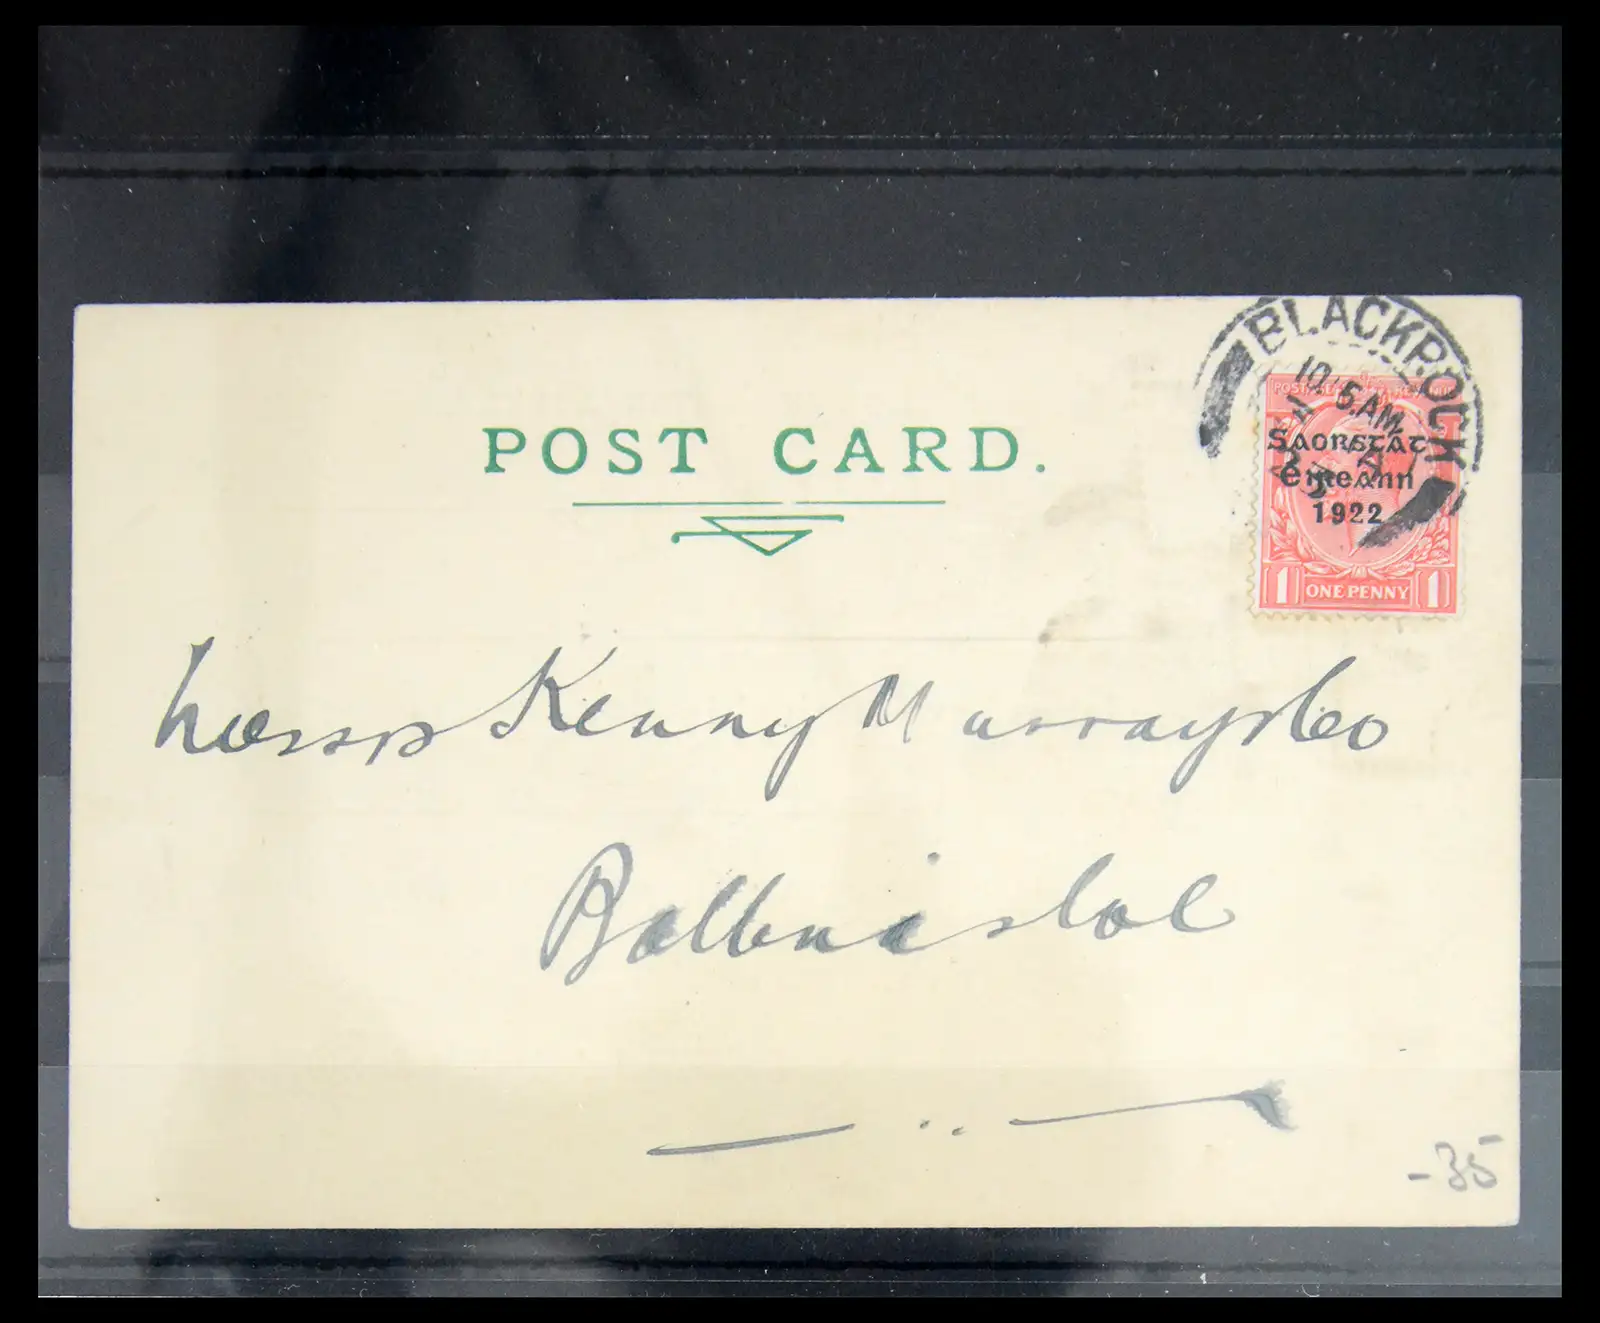 BLACKROCK
10 15 AM
POSTAGE REVENUE
Saorstát
Éireann
1922
1 ONE PENNY 1
POST CARD.
Messrs Kenny Murray & Co
Balbriggan
-35